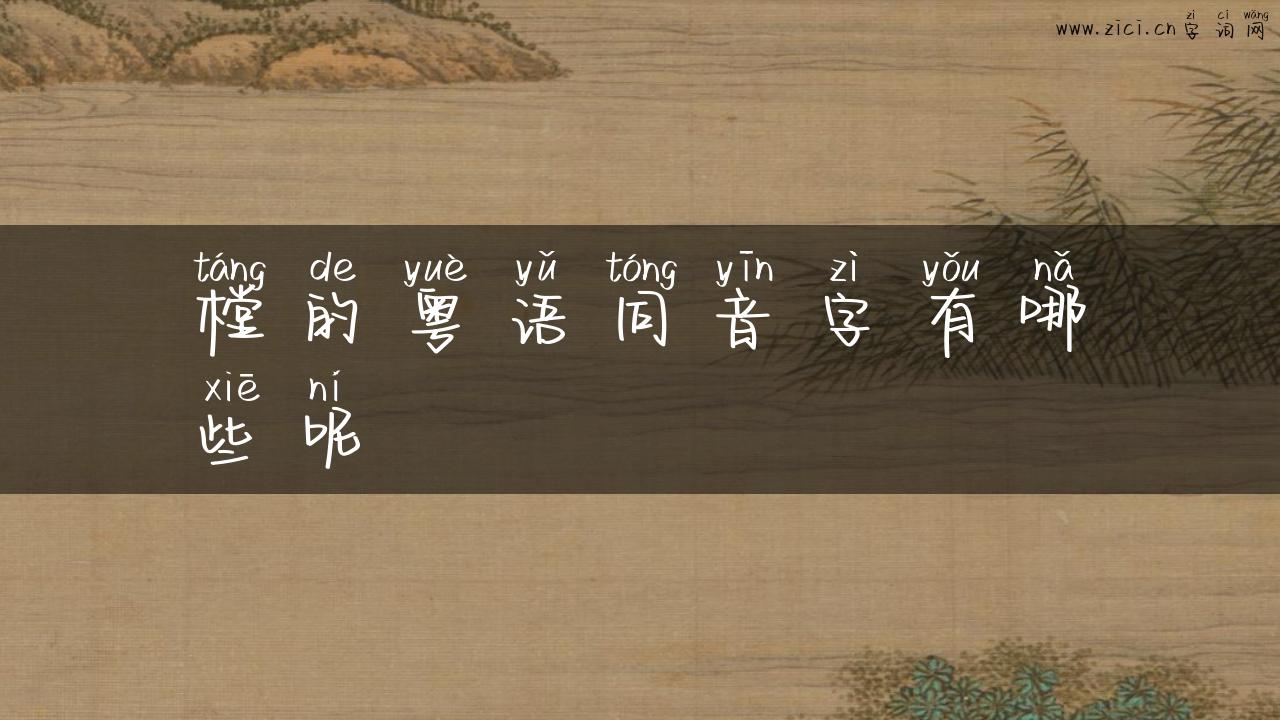 www.zici.cn
zì cí wǎng
字词网
táng de yuè yǔ tóng yīn zì yǒu nǎ
樘的粤语同音字有哪
xiē ní
些呢